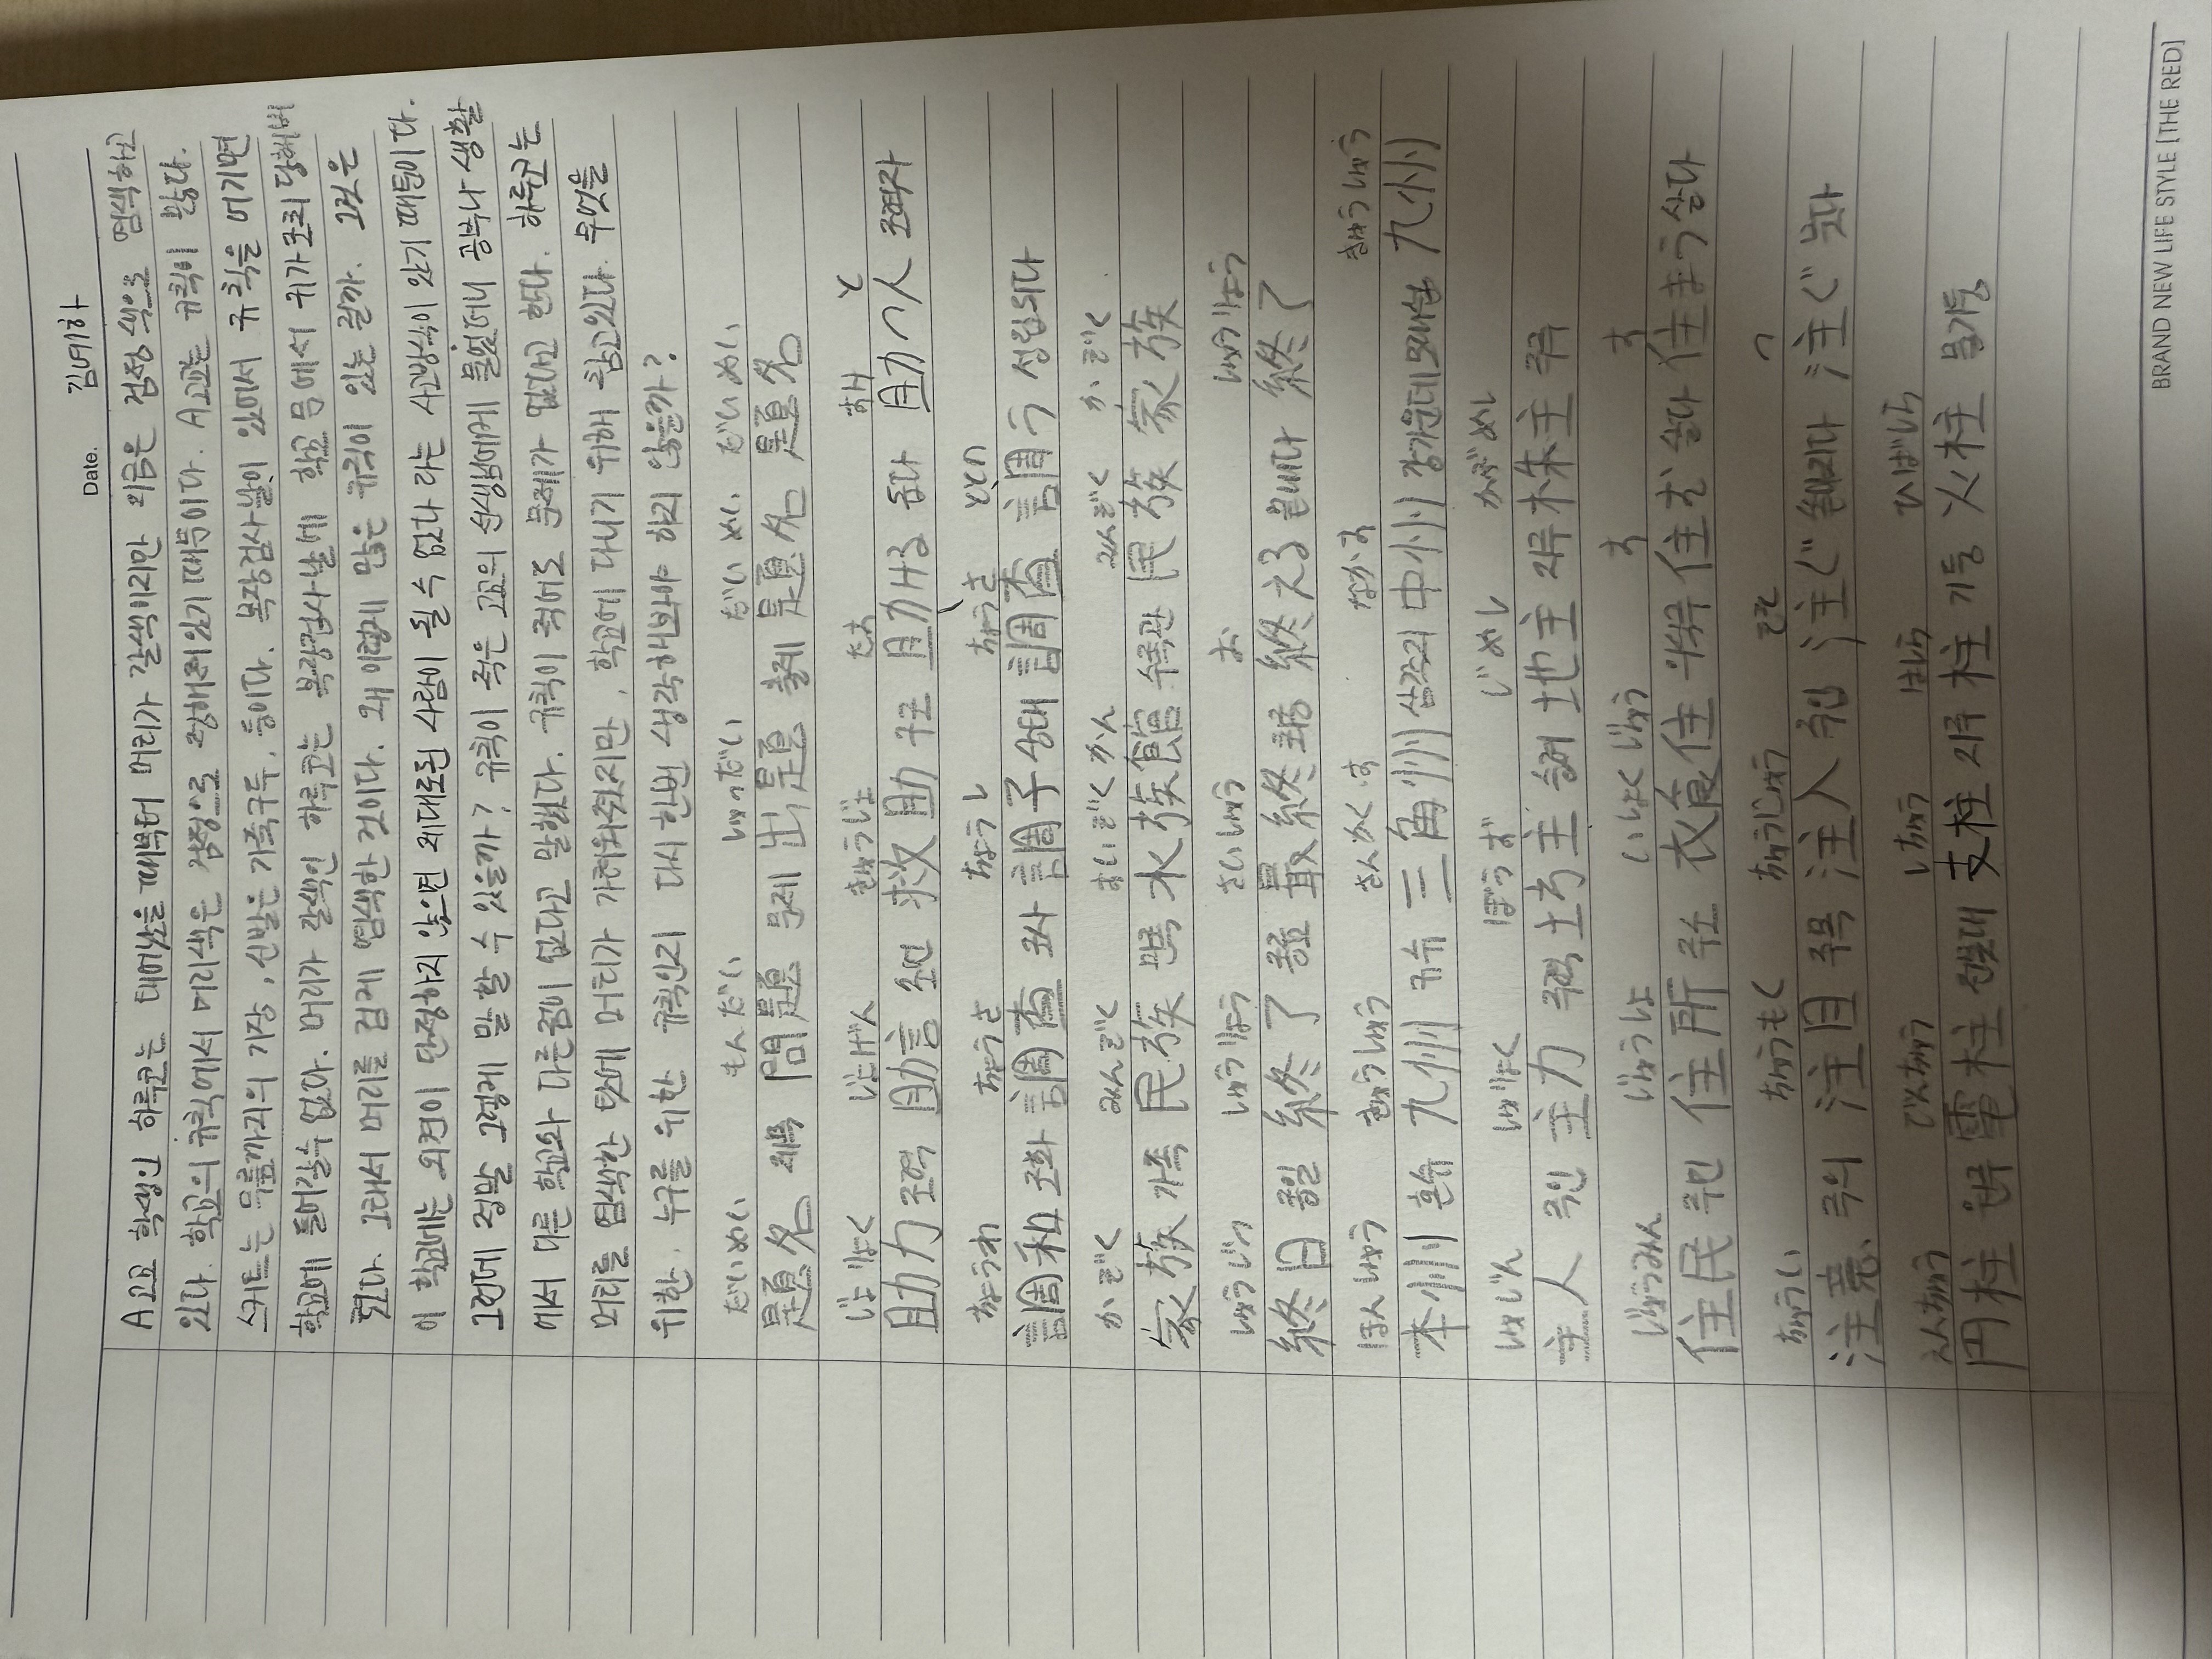 Date. 김예하
A고교 학생인 하루군는 태어났을 때부터 머리가 갈색이지만 지금은 검정색으로 염색하고
있다. 학교의 규칙에서 머리색은 검정으로 정해져있기 때문이다. A고교는 규칙이 많다.
스커트는 무릎까지의 기장, 신발은 가죽구두, 등이다. 복장검사날이 있어서 규칙을 어기면
학교에 들어갈수 없다. 머리가 갈색인 하루군는 복장검사날에 학교 문에서 귀가조치 당해버
렸다. 그래서 머리를 검게 염색한 것이다. 왜 이렇게 많은 규칙이 있는 걸까. 그것은
이 학교에는 외견이 단정하지 않으면 제대로된 사람이 될 수 없다 라는 사고방식이 있기 때문이다.
그런데 정말 그렇게 말 할 수 있을까? 규칙이 적은 고교의 선생님에게 물었더니 공부나 생활
에서 다른 학교와 다른점이 없다고 말했다. 규칙이 적어도 문제가 없다고 한다. 하루군는
머리를 염색한 탓에 머리가 가려워졌지만, 학교에 다니기 위해 참고있다. 무엇을
위한. 누구를 위한 규칙인지 다시 한번 생각해봐야 하지 않을까?
だいめい もんだい しゅつだい だいめい だいめい
題名 제목 問題 문제 出題 출제 題名 題名
じょりょく じょげん きゅうじょ たす すけ と
助力 조력 助言 조언 救助 구조 助ける 돕다 助っ人 조력자
ちょうわ ちょうさ ちょうし ちょうさ ととの
調和 조화 調査 조사 調子 상태 調査 調う 성립되다
かぞく みんぞく すいぞくかん みんぞく かぞく
家族 가족 民族 민족 水族館 수족관 民族 家族
しゅうじつ しゅうりょう さいしゅう お しゅうりょう
終日 종일 終了 종료 最終 최종 終える 끝내다 終了
ほんしゅう きゅうしゅう さんかくす なかす きゅうしゅう
本州 혼슈 九州 규슈 三角州 삼각지 中州 강가운데모래섬 九州
しゅじん しゅりょく ぼうず じぬし かぶぬし
主人 주인 主力 주력 主 地主 지주 株主 주주
じゅうみん じゅうしょ いしょくじゅう す す
住民 주민 住所 주소 衣食住 의식주 住む 살다 住まう 살다
ちゅうい ちゅうもく ちゅうにゅう そそ つ
注意 주의 注目 주목 注入 주입 注ぐ 注ぐ
えんちゅう でんちゅう しちゅう はしら ひばしら
円柱 원주 電柱 전봇대 支柱 지주 柱 기둥 火柱 불기둥
BRAND NEW LIFE STYLE [THE RED]